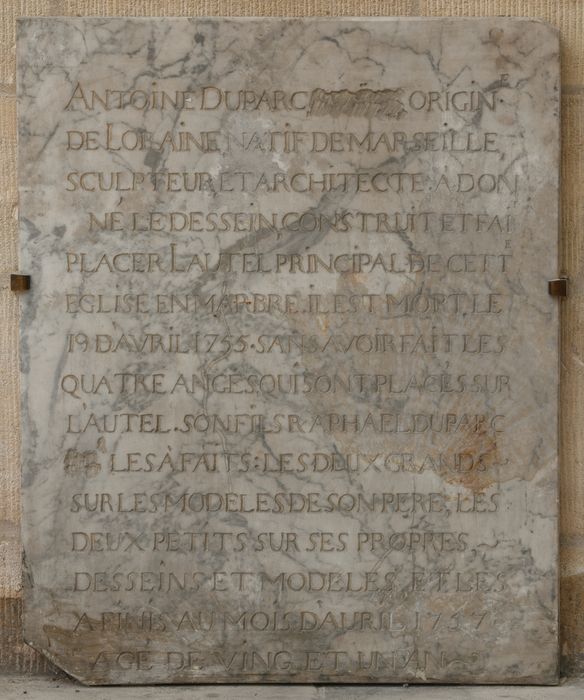 ANTOINE DUPARC ORIGINE
DE LORAINE NATIF DE MARSEILLE
SCULPTEUR ET ARCHITECTE A DON
NE LE DESSEIN CONSTRUIT ET FAIT
PLACER LAUTEL PRINCIPAL DE CETTE
EGLISE EN MARBRE. IL EST MORT. LE
19 DAVRIL 1755. SANS AVOIR FAIT LES
QUATRE ANGES QUI SONT PLACÉS SUR
L'AUTEL. SON FILS RAPHAEL DUPARC
LES À FAITS: LES DEUX GRANDS
SUR LES MODELES DE SON PERE, LES
DEUX PETITS SUR SES PROPRES
DESSEINS ET MODELES ET LES
A FINIS AU MOIS DAURIL 1757
AGE DE VING ET UN AN